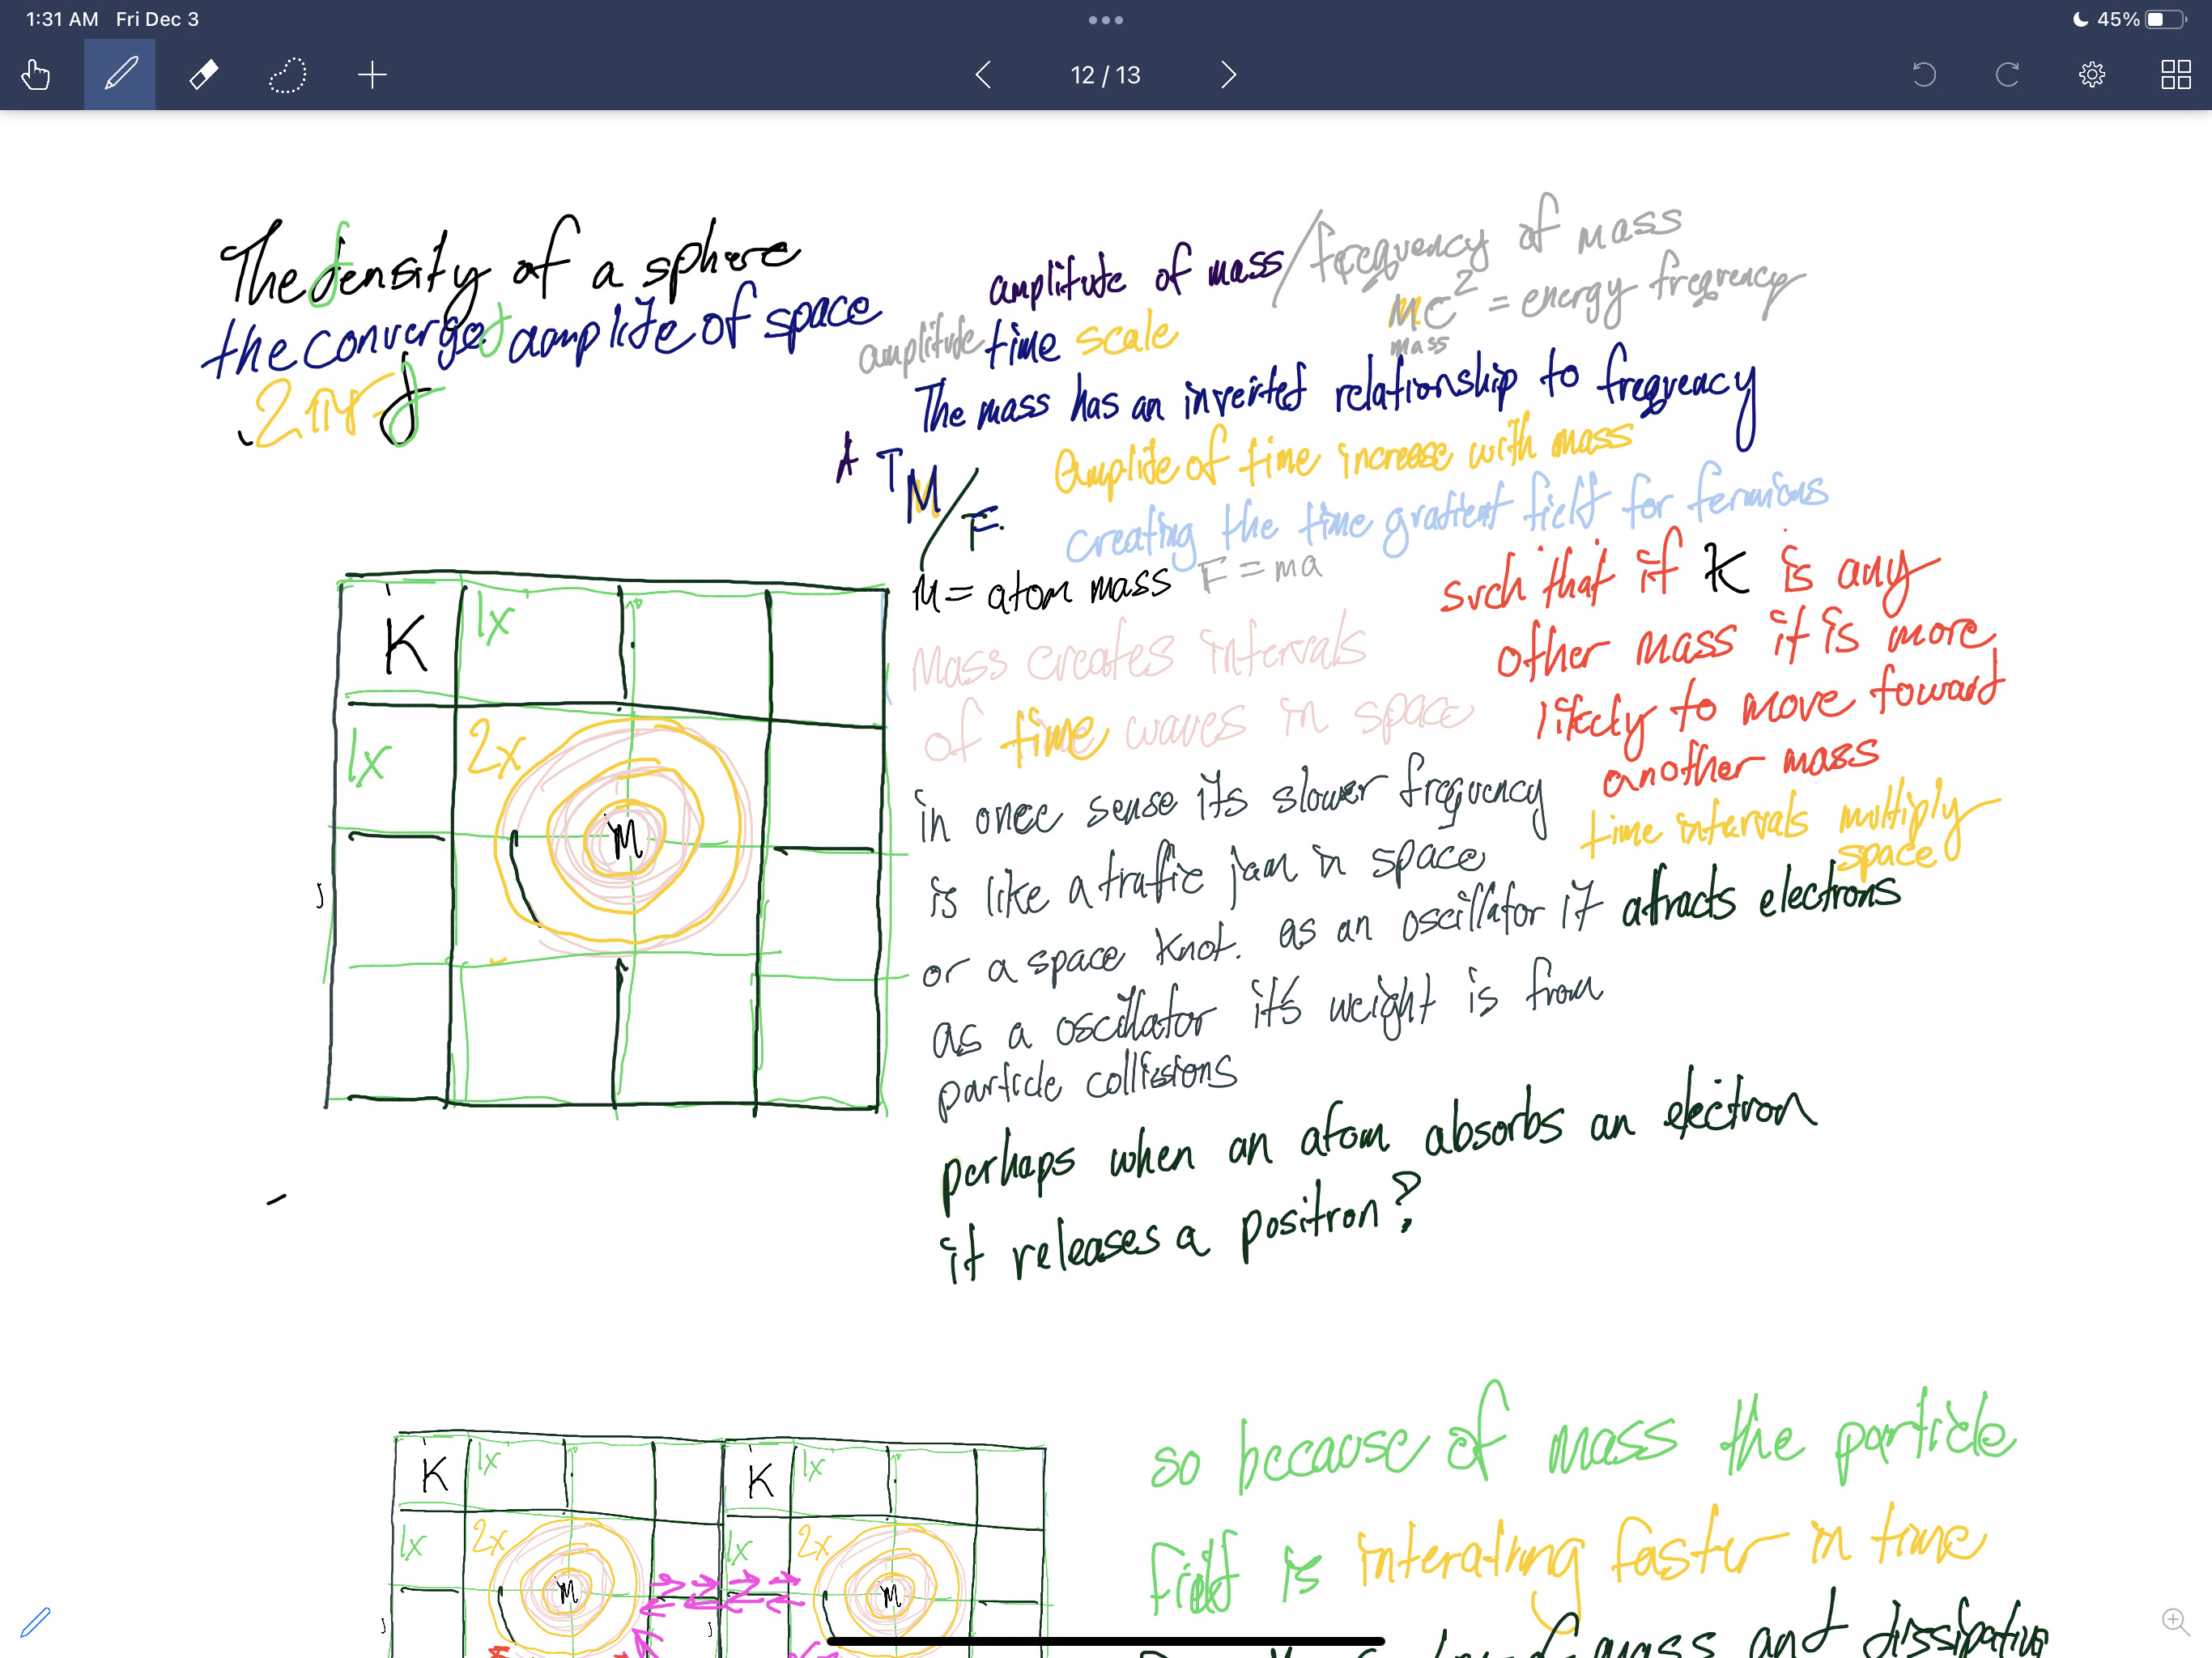 1:31 AM Fri Dec 3
45%
12 / 13
The density of a sphere
the converged aamplite of space
2πrd
amplitute of mass / frequency of mass
amplitude time scale
MC² = energy frequency
mass
The mass has an inverted relationship to frequeacy
A T M/F
Amplite of time increase with mass
creating the time gradient field for fermions
M = atom mass F = ma
such that if K is any
other mass it is more
likely to move toward
another mass
Mass creates intervals
of time waves in space
in onec sense its slower frequency
time intervals multiply
space
is like a traffic jam in space
or a space knot. as an oscillator it atracts electrons
as a oscillator it's weight is from
particle collisions
perhaps when an atom absorbs an electron
it releases a positron?
K 1x
1x 2x
M
J
so because of mass the particle
field is interating faster in time
K 1x K 1x
1x 2x 1x 2x
M M
J J
mass and dissipating